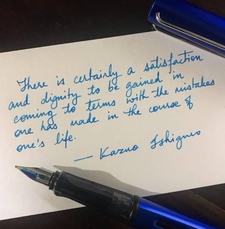 There is certainly a satisfaction
and dignity to be gained in
coming to terms with the mistakes
one has made in the course of
one's life.
— Kazuo Ishiguro